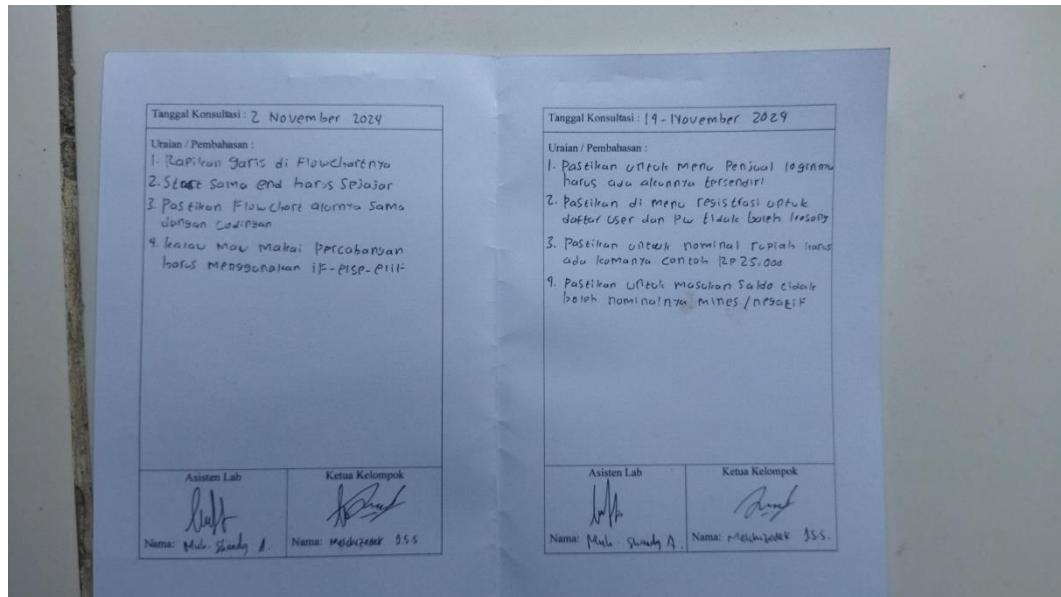 Tanggal Konsultasi : 2 November 2024
Uraian / Pembahasan :
1. Rapikan garis di Flowchartnya
2. Start sama end harus Sejajar
3. Pastikan Flowchart alurnya Sama
dengan Codingan
4. kalau Mau Makai Percabangan
harus menggunakan iF-else-eliF
Asisten Lab
Ketua Kelompok
Nama: Muh. Shandy A.
Nama: Melchizedek S.S.
Tanggal Konsultasi : 14-November 2024
Uraian / Pembahasan :
1. Pastikan untuk Menu Penjual loginnya
harus ada akunnya tersendiri
2. Pastikan di menu registrasi untuk
daftar User dan Pw tidak boleh kosong
3. Pastikan untuk nominal rupiah harus
ada komanya Contoh RP 25.000
4. Pastikan untuk masukan Saldo tidak
boleh nominalnya mines/negatiF
Asisten Lab
Ketua Kelompok
Nama: Muh. Shandy A.
Nama: Melchizedek S.S.